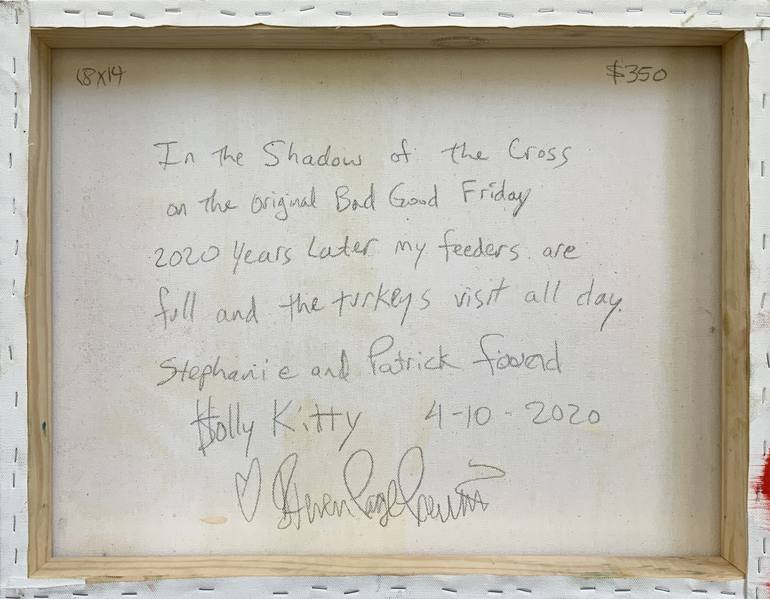 18x14
$350
In the Shadow of the Cross
on the original Bad Good Friday
2020 Years Later my feeders are
full and the turkeys visit all day.
Stephanie and Patrick found
Holly Kitty 4-10-2020
♡ Steven Page